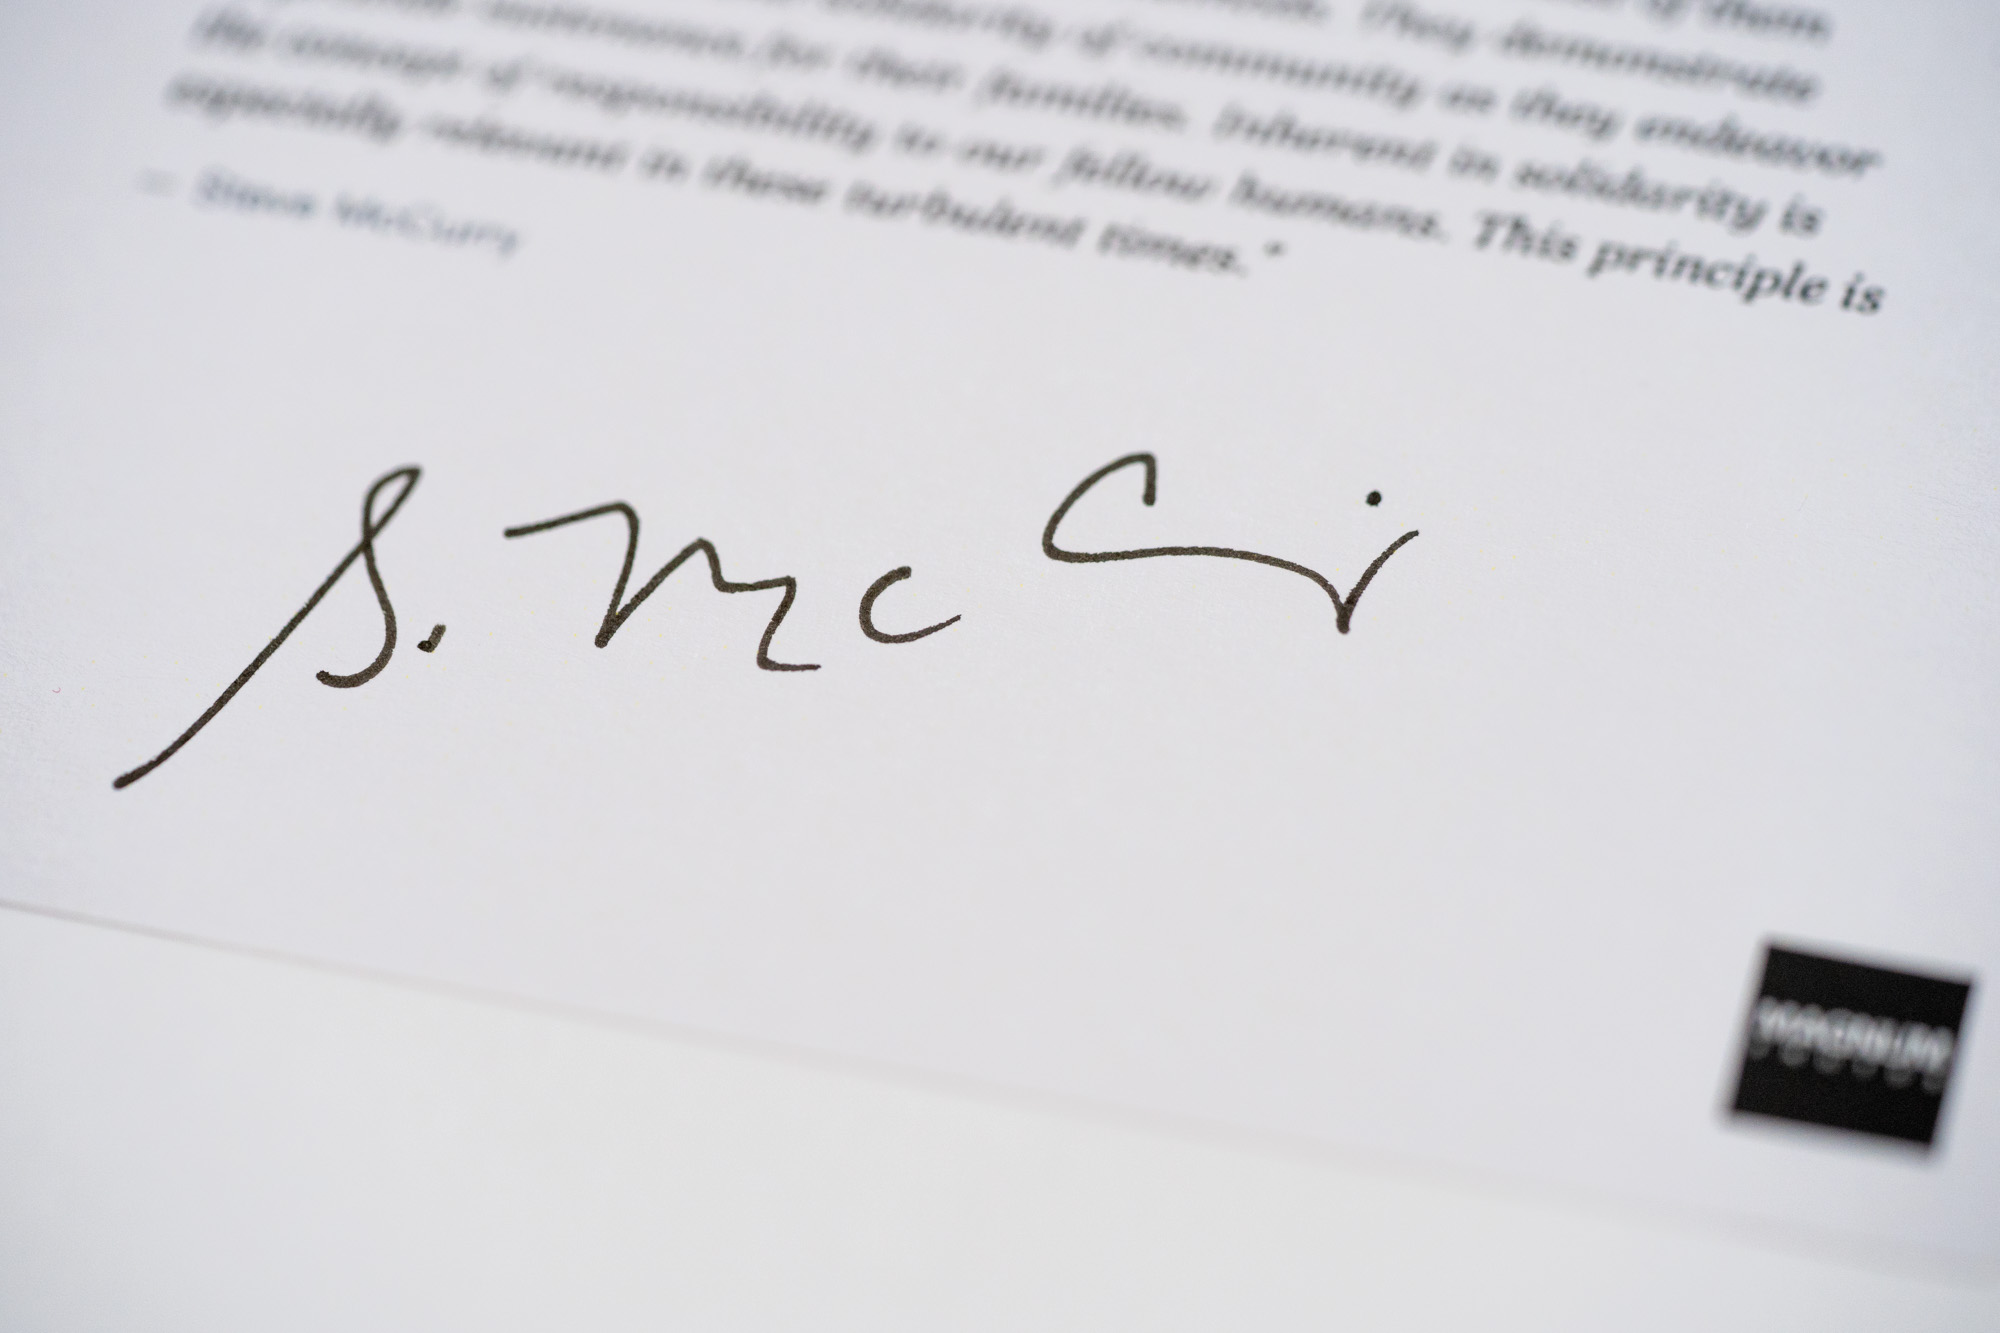 of them
solidarity of community. They demonstrate
for their families as they endeavor
the concept of responsibility to our fellow humans. Inherent in solidarity is
especially relevant in these turbulent times." This principle is
— Steve McCurry
S. McC
MAGNUM
PHOTOS